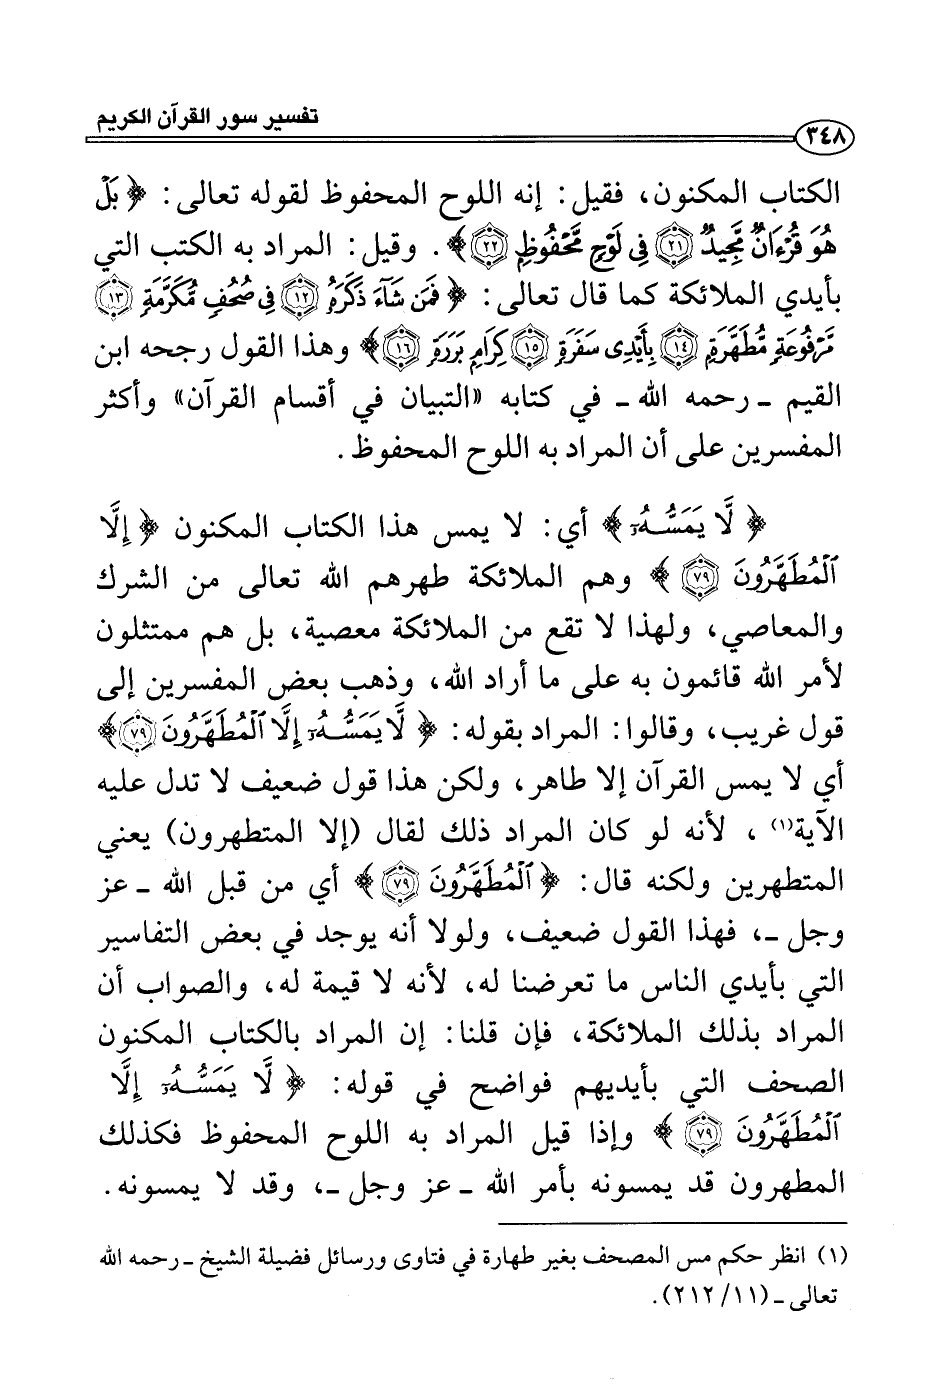 تفسير سور القرآن الكريم
٣٤٨
الكتاب المكنون، فقيل: إنه اللوح المحفوظ لقوله تعالى: ﴿بَلْ
هُوَ قُرْءَانٌ مَّجِيدٌ ﴿٢١﴾ فِي لَوْحٍ مَّحْفُوظٍ ﴿٢٢﴾﴾. وقيل: المراد به الكتب التي
بأيدي الملائكة كما قال تعالى: ﴿فَمَن شَآءَ ذَكَرَهُۥ ﴿١٢﴾ فِي صُحُفٍ مُّكَرَّمَةٍ ﴿١٣﴾
مَّرْفُوعَةٍ مُّطَهَّرَةٍ ﴿١٤﴾ بِأَيْدِى سَفَرَةٍ ﴿١٥﴾ كِرَامٍۭ بَرَرَةٍ ﴿١٦﴾﴾ وهذا القول رجحه ابن
القيم ـ رحمه الله ـ في كتابه «التبيان في أقسام القرآن» وأكثر
المفسرين على أن المراد به اللوح المحفوظ.
﴿لَّا يَمَسُّهُۥٓ﴾ أي: لا يمس هذا الكتاب المكنون ﴿إِلَّا
ٱلْمُطَهَّرُونَ ﴿٧٩﴾﴾ وهم الملائكة طهرهم الله تعالى من الشرك
والمعاصي، ولهذا لا تقع من الملائكة معصية، بل هم ممتثلون
لأمر الله قائمون به على ما أراد الله، وذهب بعض المفسرين إلى
قول غريب، وقالوا: المراد بقوله: ﴿لَّا يَمَسُّهُۥٓ إِلَّا ٱلْمُطَهَّرُونَ ﴿٧٩﴾﴾
أي لا يمس القرآن إلا طاهر، ولكن هذا قول ضعيف لا تدل عليه
الآية(١)، لأنه لو كان المراد ذلك لقال (إلا المتطهرون) يعني
المتطهرين ولكنه قال: ﴿ٱلْمُطَهَّرُونَ ﴿٧٩﴾﴾ أي من قبل الله ـ عز
وجل ـ، فهذا القول ضعيف، ولولا أنه يوجد في بعض التفاسير
التي بأيدي الناس ما تعرضنا له، لأنه لا قيمة له، والصواب أن
المراد بذلك الملائكة، فإن قلنا: إن المراد بالكتاب المكنون
الصحف التي بأيديهم فواضح في قوله: ﴿لَّا يَمَسُّهُۥٓ إِلَّا
ٱلْمُطَهَّرُونَ ﴿٧٩﴾﴾ وإذا قيل المراد به اللوح المحفوظ فكذلك
المطهرون قد يمسونه بأمر الله ـ عز وجل ـ، وقد لا يمسونه.
(١) انظر حكم مس المصحف بغير طهارة في فتاوى ورسائل فضيلة الشيخ ـ رحمه الله
تعالى ـ (٢١٢/١١).